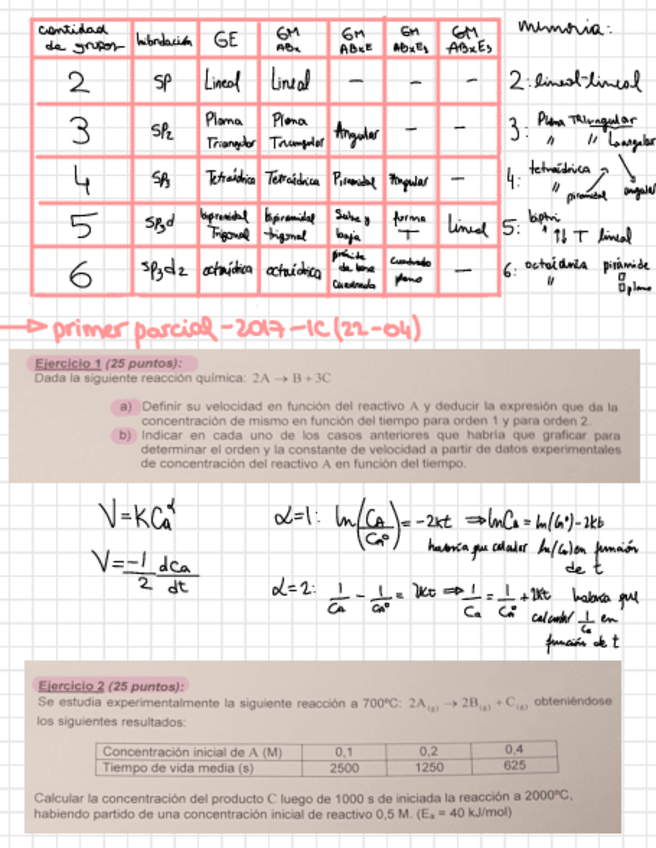 cantidad de grupos hibridación GE GM ABx GM ABxE GM ABxE2 GM ABxE3
2 sp Lineal Lineal - - -
3 sp2 Plana Triangular Plana Triangular Angular - -
4 sp3 Tetraédrica Tetraédrica Piramidal Angular -
5 sp3d bipiramidal Trigonal bipiramidal trigonal Sube y baja forma T Lineal
6 sp3d2 octaédrica octaédrica pirámide de base cuadrada cuadrado plano -
memoria:
2: lineal-lineal
3: Plana Triangular
" " angular
4: tetraédrica
" piramidal angular
5: bipi
" ↑↓ T lineal
6: octaédrica pirámide □
" □ plano
→ primer parcial - 2017 - 1C (22-04)
Ejercicio 1 (25 puntos):
Dada la siguiente reacción química: 2A → B + 3C
a) Definir su velocidad en función del reactivo A y deducir la expresión que da la
concentración de mismo en función del tiempo para orden 1 y para orden 2.
b) Indicar en cada uno de los casos anteriores que habría que graficar para
determinar el orden y la constante de velocidad a partir de datos experimentales
de concentración del reactivo A en función del tiempo.
V = KCa^α
V = -1/2 dca/dt
α=1: ln(CA/Ca°) = -2kt ⇒ lnCa = ln(Ca°) - 2kt
habría que calcular ln(Ca) en función
de t
α=2: 1/Ca - 1/Ca° = 2kt ⇒ 1/Ca = 1/Ca° + 2kt habría que
calcular 1/Ca en
función de t
Ejercicio 2 (25 puntos):
Se estudia experimentalmente la siguiente reacción a 700ºC: 2A(g) → 2B(g) + C(g) obteniéndose
los siguientes resultados:
Concentración inicial de A (M) 0,1 0,2 0,4
Tiempo de vida media (s) 2500 1250 625
Calcular la concentración del producto C luego de 1000 s de iniciada la reacción a 2000ºC,
habiendo partido de una concentración inicial de reactivo 0,5 M. (Ea = 40 kJ/mol)